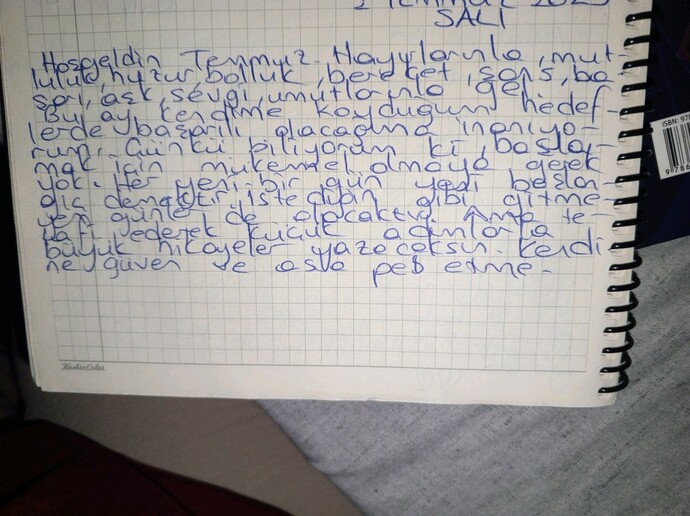 TEMMUZ
SALI
Hoşgeldin Temmuz. Hayırlarınla, mut-
luluk, huzur, bolluk, bereket, şans, ba-
şarı, aşk, sevgi, umutlarınla gel.
Bu ay kendime koyduğum hedef-
lerde başarılı olacağıma inanıyo-
rum. Çünkü biliyorum ki başla-
mak için mükemmel olmaya gerek
yok. Her yeni bir gün yeni başlan-
gıç demektir, istediğin gibi gitme-
yen günler de olacaktır. Ama te-
ederek küçük adımlarla
büyük hikayeler yazacaksın. Kendi-
ne güven ve asla pes etme.
Keskin Color
ISBN: 978
9 786